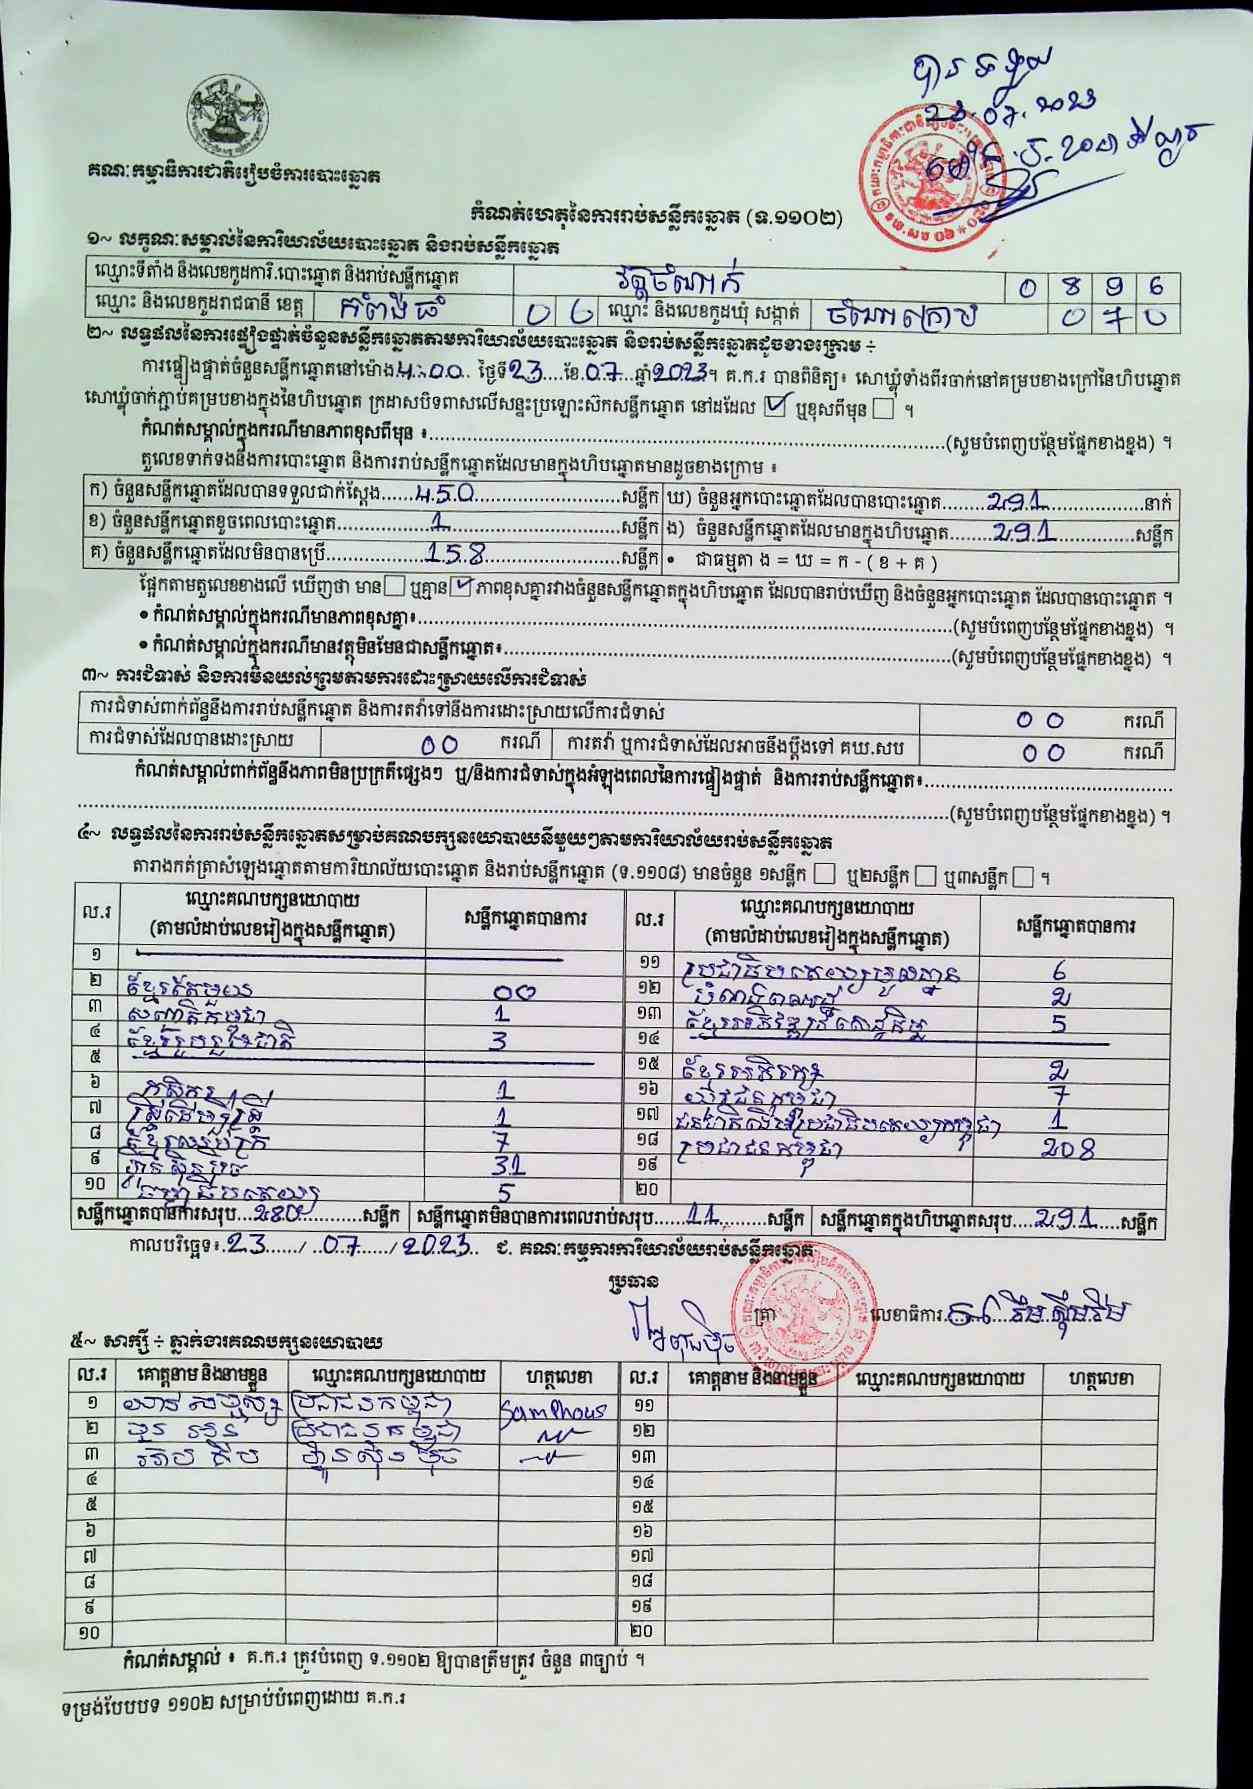 បានទទួល
23.07.2023
គណៈកម្មាធិការជាតិរៀបចំការបោះឆ្នោត
កំណត់ហេតុនៃការរាប់សន្លឹកឆ្នោត (ទ.១១០២)
១~ លក្ខណៈសម្គាល់នៃការិយាល័យបោះឆ្នោត និងរាប់សន្លឹកឆ្នោត
ឈ្មោះទីតាំង និងលេខកូដការិ.បោះឆ្នោត និងរាប់សន្លឹកឆ្នោត វត្តចំណក់ 0 8 9 6
ឈ្មោះ និងលេខកូដរាជធានី ខេត្ត កំពង់ធំ 0 6 ឈ្មោះ និងលេខកូដឃុំ សង្កាត់ 0 7 0
២~ លទ្ធផលនៃការផ្ទៀងផ្ទាត់ចំនួនសន្លឹកឆ្នោតតាមការិយាល័យបោះឆ្នោត និងរាប់សន្លឹកឆ្នោតដូចខាងក្រោម ÷
ការផ្ទៀងផ្ទាត់ចំនួនសន្លឹកឆ្នោតនៅម៉ោង 4:00 ថ្ងៃទី 23 ខែ 07 ឆ្នាំ 2023។ គ.ក.រ បានពិនិត្យ៖ សោឃ្លុំទាំងពីរចាក់នៅគម្របខាងក្រៅនៃហិបឆ្នោត
សោឃ្លុំចាក់ភ្ជាប់គម្របខាងក្នុងនៃហិបឆ្នោត ក្រដាសបិទពាសលើសន្ទះប្រឡោះស៊កសន្លឹកឆ្នោត នៅដដែល ☑ ឬខុសពីមុន ☐ ។
កំណត់សម្គាល់ក្នុងករណីមានភាពខុសពីមុន ៖........(សូមបំពេញបន្ថែមផ្នែកខាងខ្នង) ។
តួលេខទាក់ទងនឹងការបោះឆ្នោត និងការរាប់សន្លឹកឆ្នោតដែលមានក្នុងហិបឆ្នោតមានដូចខាងក្រោម ៖
ក) ចំនួនសន្លឹកឆ្នោតដែលបានទទួលជាក់ស្តែង 450 សន្លឹក ឃ) ចំនួនអ្នកបោះឆ្នោតដែលបានបោះឆ្នោត 291 នាក់
ខ) ចំនួនសន្លឹកឆ្នោតខូចពេលបោះឆ្នោត 1 សន្លឹក ង) ចំនួនសន្លឹកឆ្នោតដែលមានក្នុងហិបឆ្នោត 291 សន្លឹក
គ) ចំនួនសន្លឹកឆ្នោតដែលមិនបានប្រើ 158 សន្លឹក • ជាធម្មតា ង = ឃ = ក - ( ខ + គ )
ផ្អែកតាមតួលេខខាងលើ ឃើញថា មាន ☐ ឬគ្មាន ☑ ភាពខុសគ្នារវាងចំនួនសន្លឹកឆ្នោតក្នុងហិបឆ្នោត ដែលបានរាប់ឃើញ និងចំនួនអ្នកបោះឆ្នោត ដែលបានបោះឆ្នោត ។
• កំណត់សម្គាល់ក្នុងករណីមានភាពខុសគ្នា៖........(សូមបំពេញបន្ថែមផ្នែកខាងខ្នង) ។
• កំណត់សម្គាល់ក្នុងករណីមានវត្ថុមិនមែនជាសន្លឹកឆ្នោត៖........(សូមបំពេញបន្ថែមផ្នែកខាងខ្នង) ។
៣~ ការជំទាស់ និងការមិនយល់ព្រមតាមការដោះស្រាយលើការជំទាស់
ការជំទាស់ពាក់ព័ន្ធនឹងការរាប់សន្លឹកឆ្នោត និងការតវ៉ាទៅនឹងការដោះស្រាយលើការជំទាស់ 00 ករណី
ការជំទាស់ដែលបានដោះស្រាយ 00 ករណី ការតវ៉ា ឬការជំទាស់ដែលអាចនឹងប្តឹងទៅ គឃ.សប 00 ករណី
កំណត់សម្គាល់ពាក់ព័ន្ធនឹងភាពមិនប្រក្រតីផ្សេងៗ ឬ/និងការជំទាស់ក្នុងអំឡុងពេលនៃការផ្ទៀងផ្ទាត់ និងការរាប់សន្លឹកឆ្នោត៖........
........(សូមបំពេញបន្ថែមផ្នែកខាងខ្នង) ។
៤~ លទ្ធផលនៃការរាប់សន្លឹកឆ្នោតសម្រាប់គណបក្សនយោបាយនីមួយៗតាមការិយាល័យរាប់សន្លឹកឆ្នោត
តារាងកត់ត្រាសំឡេងឆ្នោតតាមការិយាល័យបោះឆ្នោត និងរាប់សន្លឹកឆ្នោត (ទ.១១០៨) មានចំនួន ១សន្លឹក ☐ ឬ២សន្លឹក ☐ ឬ៣សន្លឹក ☐ ។
ល.រ ឈ្មោះគណបក្សនយោបាយ (តាមលំដាប់លេខរៀងក្នុងសន្លឹកឆ្នោត) សន្លឹកឆ្នោតបានការ ល.រ ឈ្មោះគណបក្សនយោបាយ (តាមលំដាប់លេខរៀងក្នុងសន្លឹកឆ្នោត) សន្លឹកឆ្នោតបានការ
១ ១១ ប្រជាធិបតេយ្យមូលដ្ឋាន 6
២ ខ្មែរតែមួយ 00 ១២ 2
៣ សញ្ជាតិកម្ពុជា 1 ១៣ ខ្មែរអភិវឌ្ឍន៍សេដ្ឋកិច្ច 5
៤ ខ្មែររួបរួមជាតិ 3 ១៤
៥ ១៥ ខ្មែរអភិរក្ស 2
៦ កសិករ 1 ១៦ យុវជនកម្ពុជា 7
៧ ស្ត្រីដើម្បីស្ត្រី 1 ១៧ ជនជាតិដើមប្រជាធិបតេយ្យកម្ពុជា 1
៨ ខ្មែរឈប់ក្រ 7 ១៨ ប្រជាជនកម្ពុជា 208
៩ ហ៊្វុនស៊ិនប៉ិច 31 ១៩
១០ ធម្មាធិបតេយ្យ 5 ២០
សន្លឹកឆ្នោតបានការសរុប 280 សន្លឹក សន្លឹកឆ្នោតមិនបានការពេលរាប់សរុប 11 សន្លឹក សន្លឹកឆ្នោតក្នុងហិបឆ្នោតសរុប 291 សន្លឹក
កាលបរិច្ឆេទ៖ 23 / 07 / 2023 ជ. គណៈកម្មការការិយាល័យរាប់សន្លឹកឆ្នោត
ប្រធាន
ត្រា លេខាធិការ
៥~ សាក្សី ÷ ភ្នាក់ងារគណបក្សនយោបាយ
ល.រ គោត្តនាម និងនាមខ្លួន ឈ្មោះគណបក្សនយោបាយ ហត្ថលេខា ល.រ គោត្តនាម និងនាមខ្លួន ឈ្មោះគណបក្សនយោបាយ ហត្ថលេខា
១ ប្រជាជនកម្ពុជា Samphous ១១
២ ប្រជាជនកម្ពុជា ១២
៣ ហ៊្វុនស៊ិនប៉ិច ១៣
៤ ១៤
៥ ១៥
៦ ១៦
៧ ១៧
៨ ១៨
៩ ១៩
១០ ២០
កំណត់សម្គាល់ ៖ គ.ក.រ ត្រូវបំពេញ ទ.១១០២ ឱ្យបានត្រឹមត្រូវ ចំនួន ៣ច្បាប់ ។
ទម្រង់បែបបទ ១១០២ សម្រាប់បំពេញដោយ គ.ក.រ